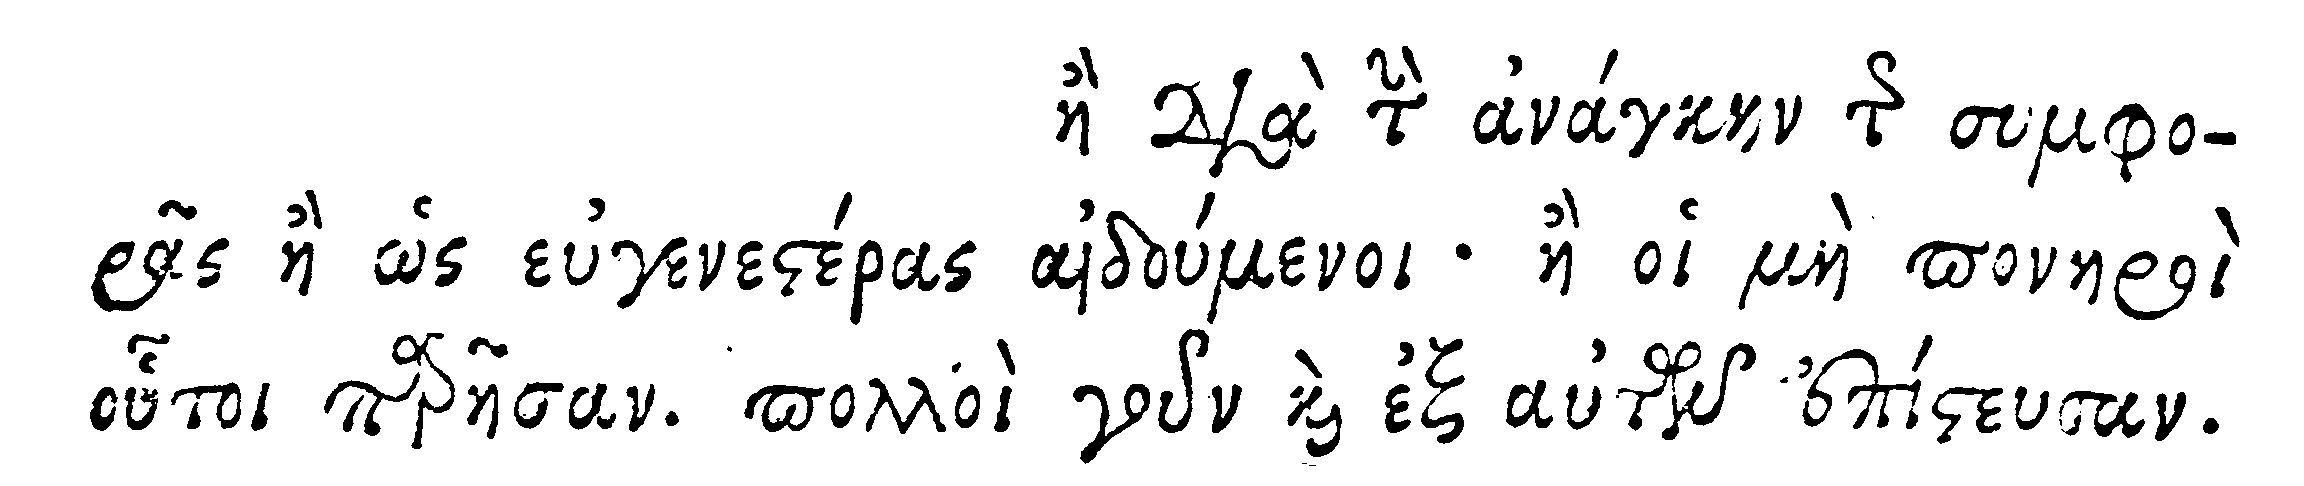 ἢ διὰ τὴν ἀνάγκην τῆς συμφο-
ρᾶς ἢ ὡς εὐγενεστέρας αἰδούμενοι· ἢ οἱ μὴ πονηροὶ
οὗτοι παρῆσαν. πολλοὶ γοῦν καὶ ἐξ αὐτῶν ἐπίστευσαν.